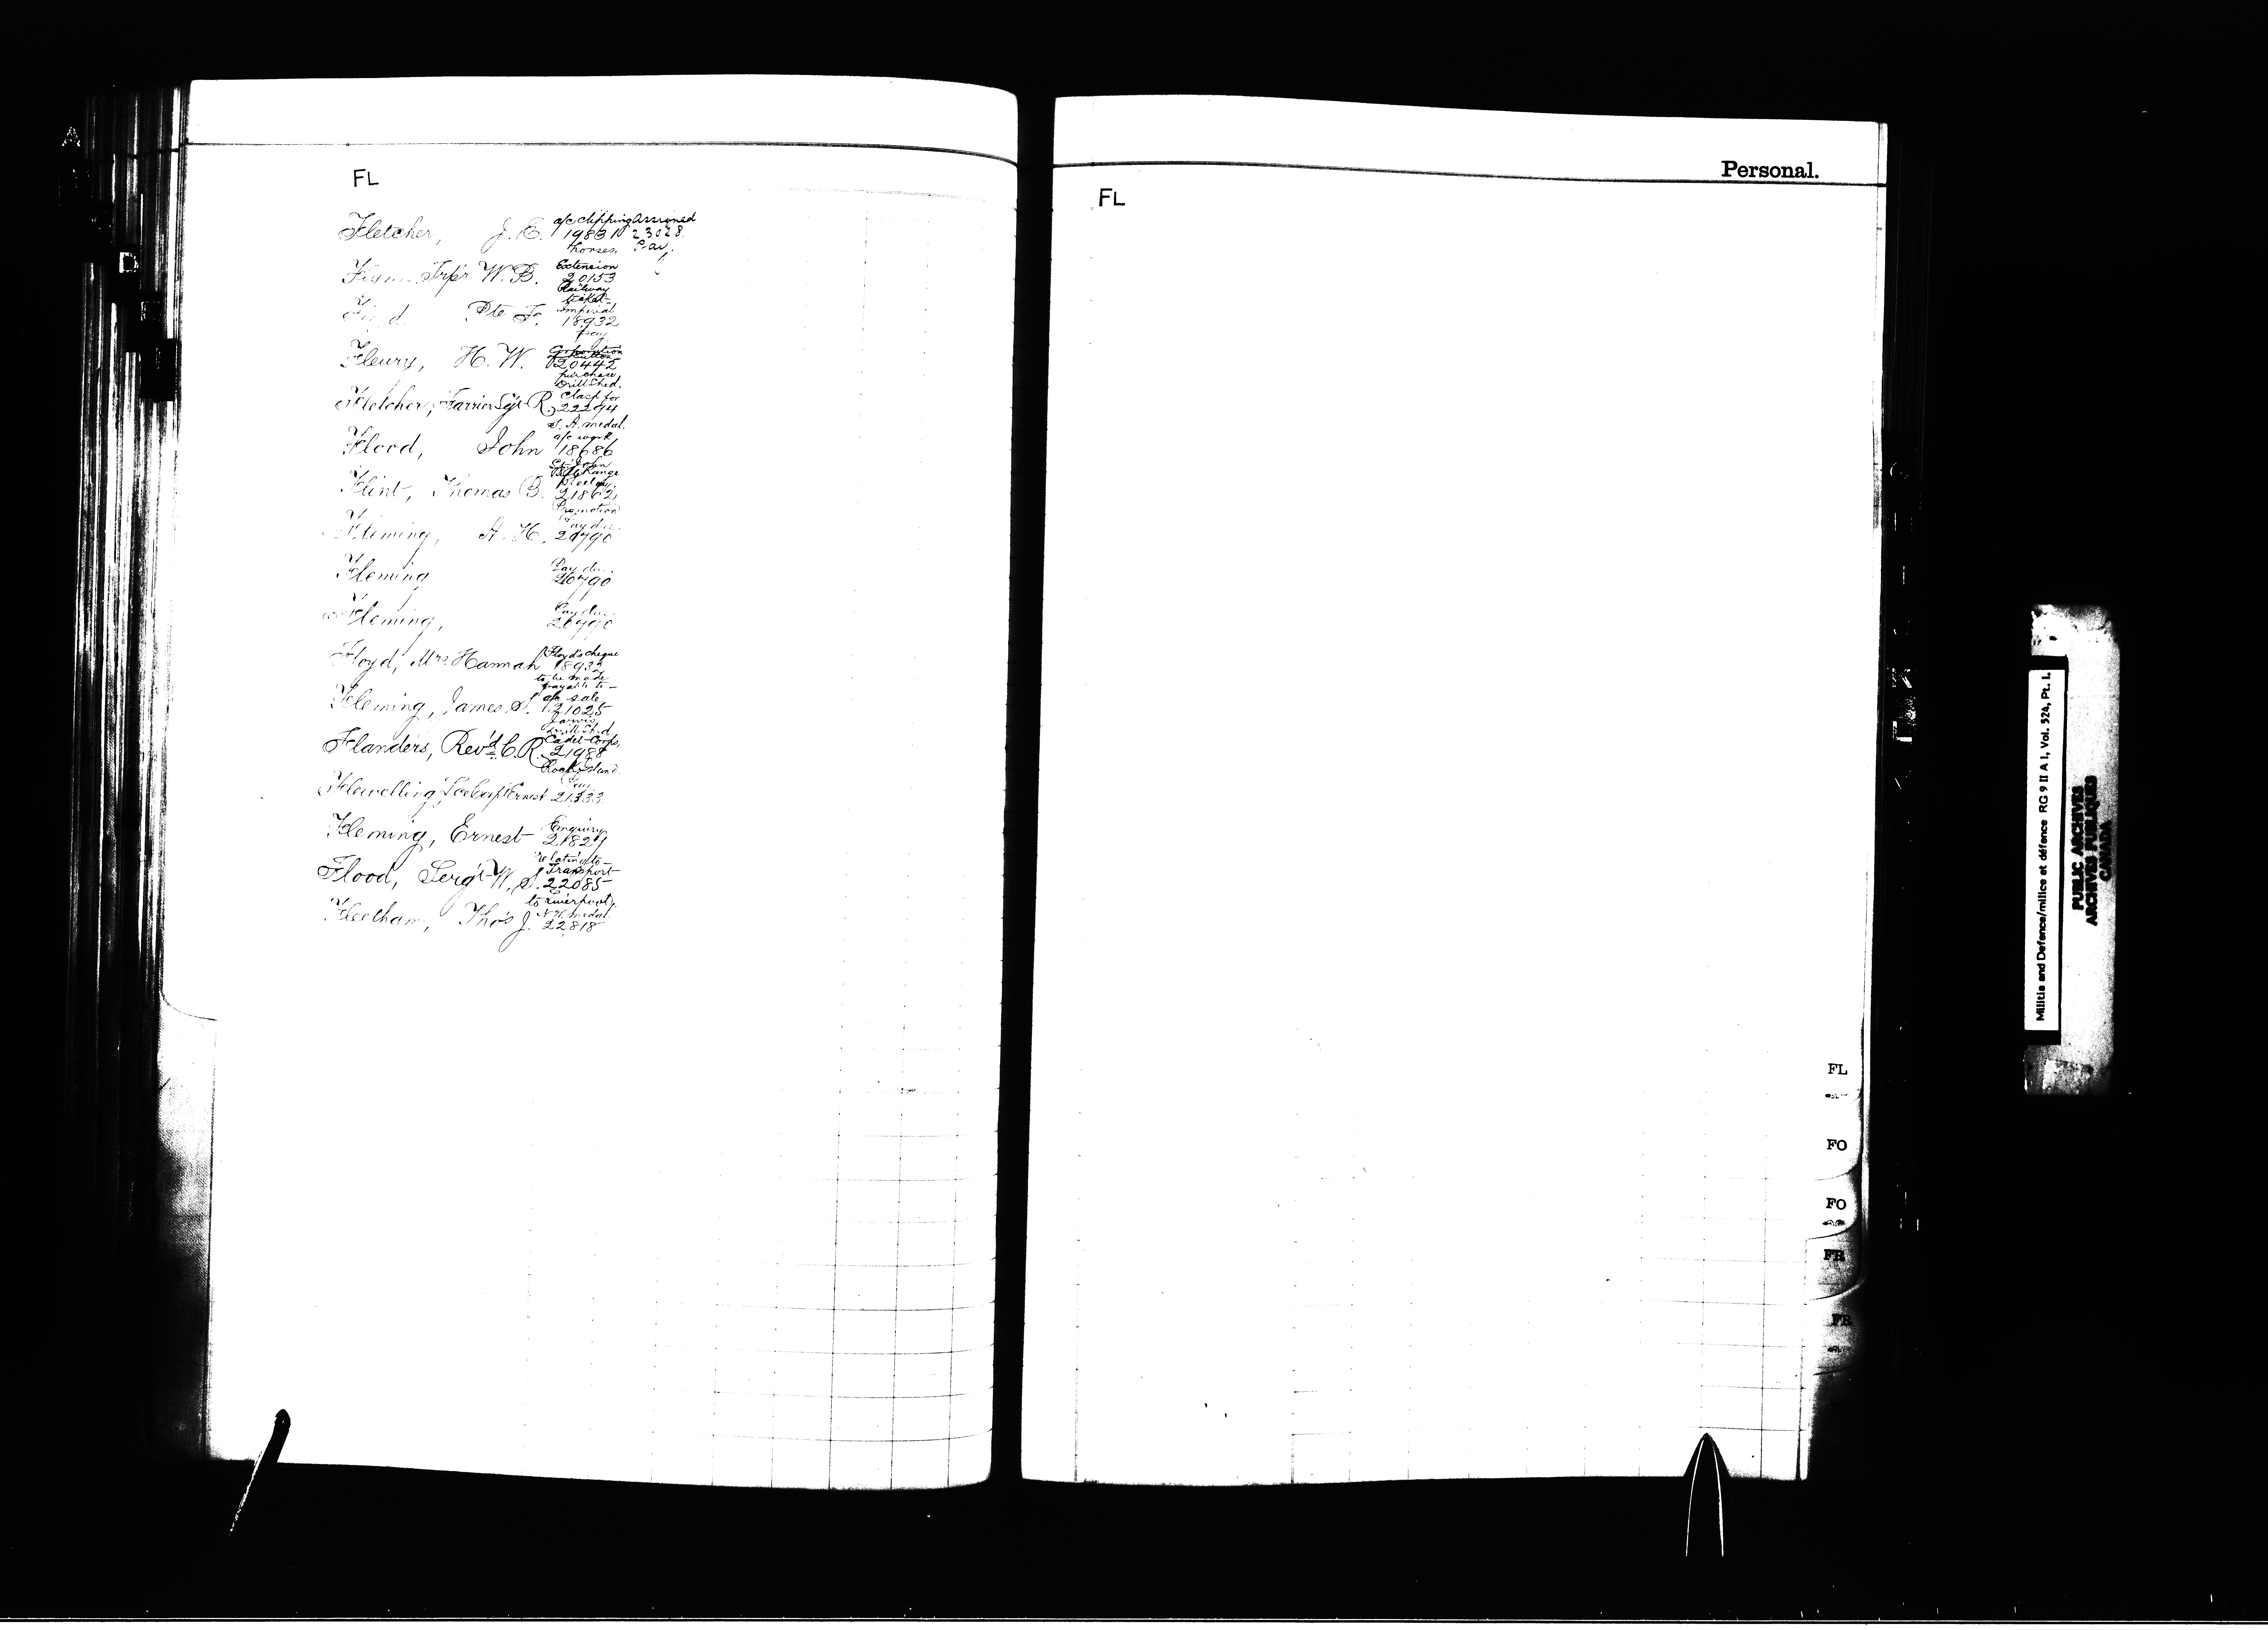 FL
Fletcher, J. E. a/c clipping 19831 horses. Assigned 23028 Pay.
Trp'r W. B. Extension 20153 Railway ticket
Pte F. Imperial 18932 Pay
Fleury, H. W. 20442 purchase Drill Shed.
Fletcher, Farrier Sgt R. Clasp for 22294 S. A. medal.
Flood, John a/c work 18686 St. John Range
Flint, Thomas B. 21862 Promotion
Fleming, A. H. Pay due 20790
Fleming Pay due 20790
Fleming, Pay due 20790
Floyd, Mrs Hannah Floyd's cheque 18932 to be made payable to
Fleming, James S. a/c sale 21025 Jarvis Drill Shed
Flanders, Rev'd C. R. Cadet Corps, 21988 Rock Island
Flewelling, Lce Corp'l Ernest Pay 21333
Fleming, Ernest Enquiry 21827 relating to
Flood, Serg't W. S. Transport 22085 to Liverpool
Fleetham, Tho's J. N. W. medal. 22818
Personal.
FL
FL
FO
FO
FR
FR
Militia and Defence/milice et défence RG 9 II A 1, Vol. 524, Pt. 1.
PUBLIC ARCHIVES
ARCHIVES PUBLIQUES
CANADA